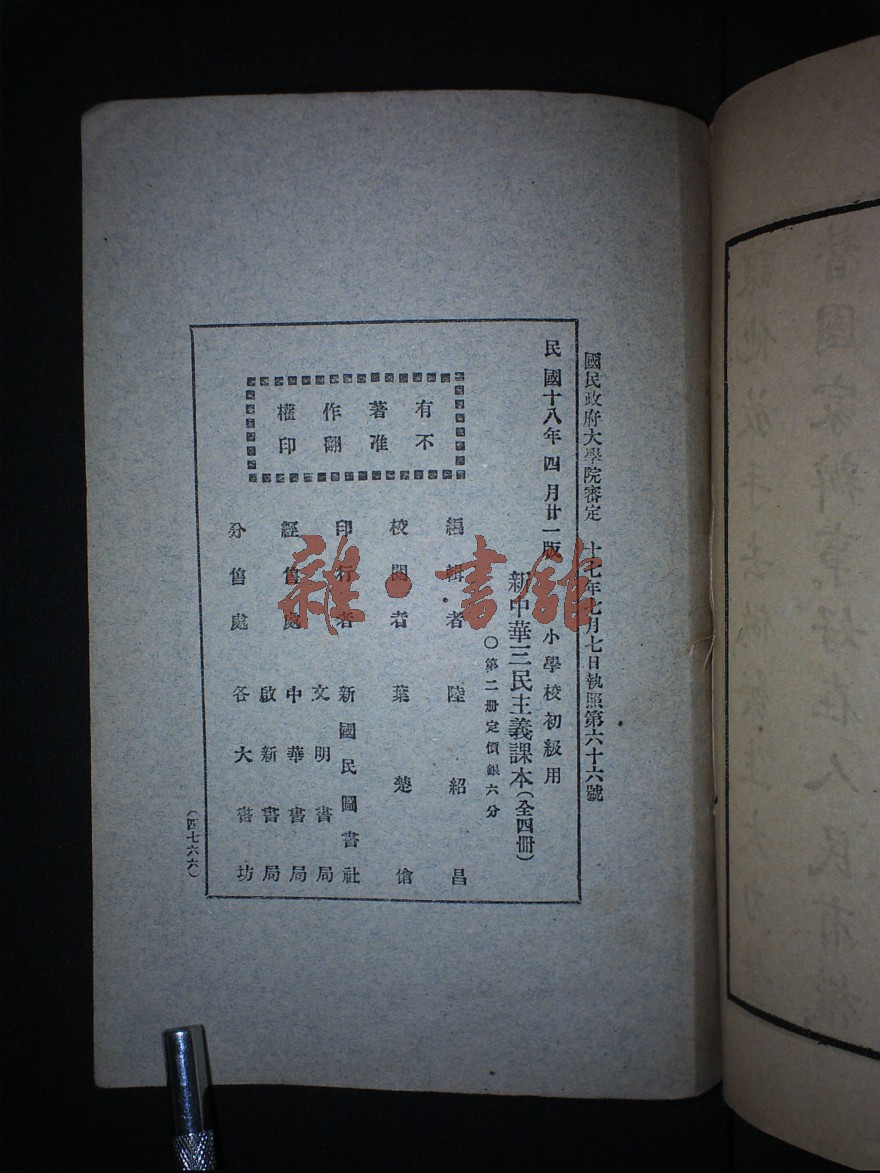 國民政府大學院審定　十七年七月七日執照第六十六號
民國十八年四月廿一版
小學校初級用
新中華三民主義課本（全四冊）
○第二册定價銀六分
有著作權
不准翻印
編輯者　陸紹昌
校閱者　葉楚傖
印行者　新國民圖書社
經售處　文明書局
中華書局
啟新書局
分售處　各大書坊
（四七六六）
雜·書館